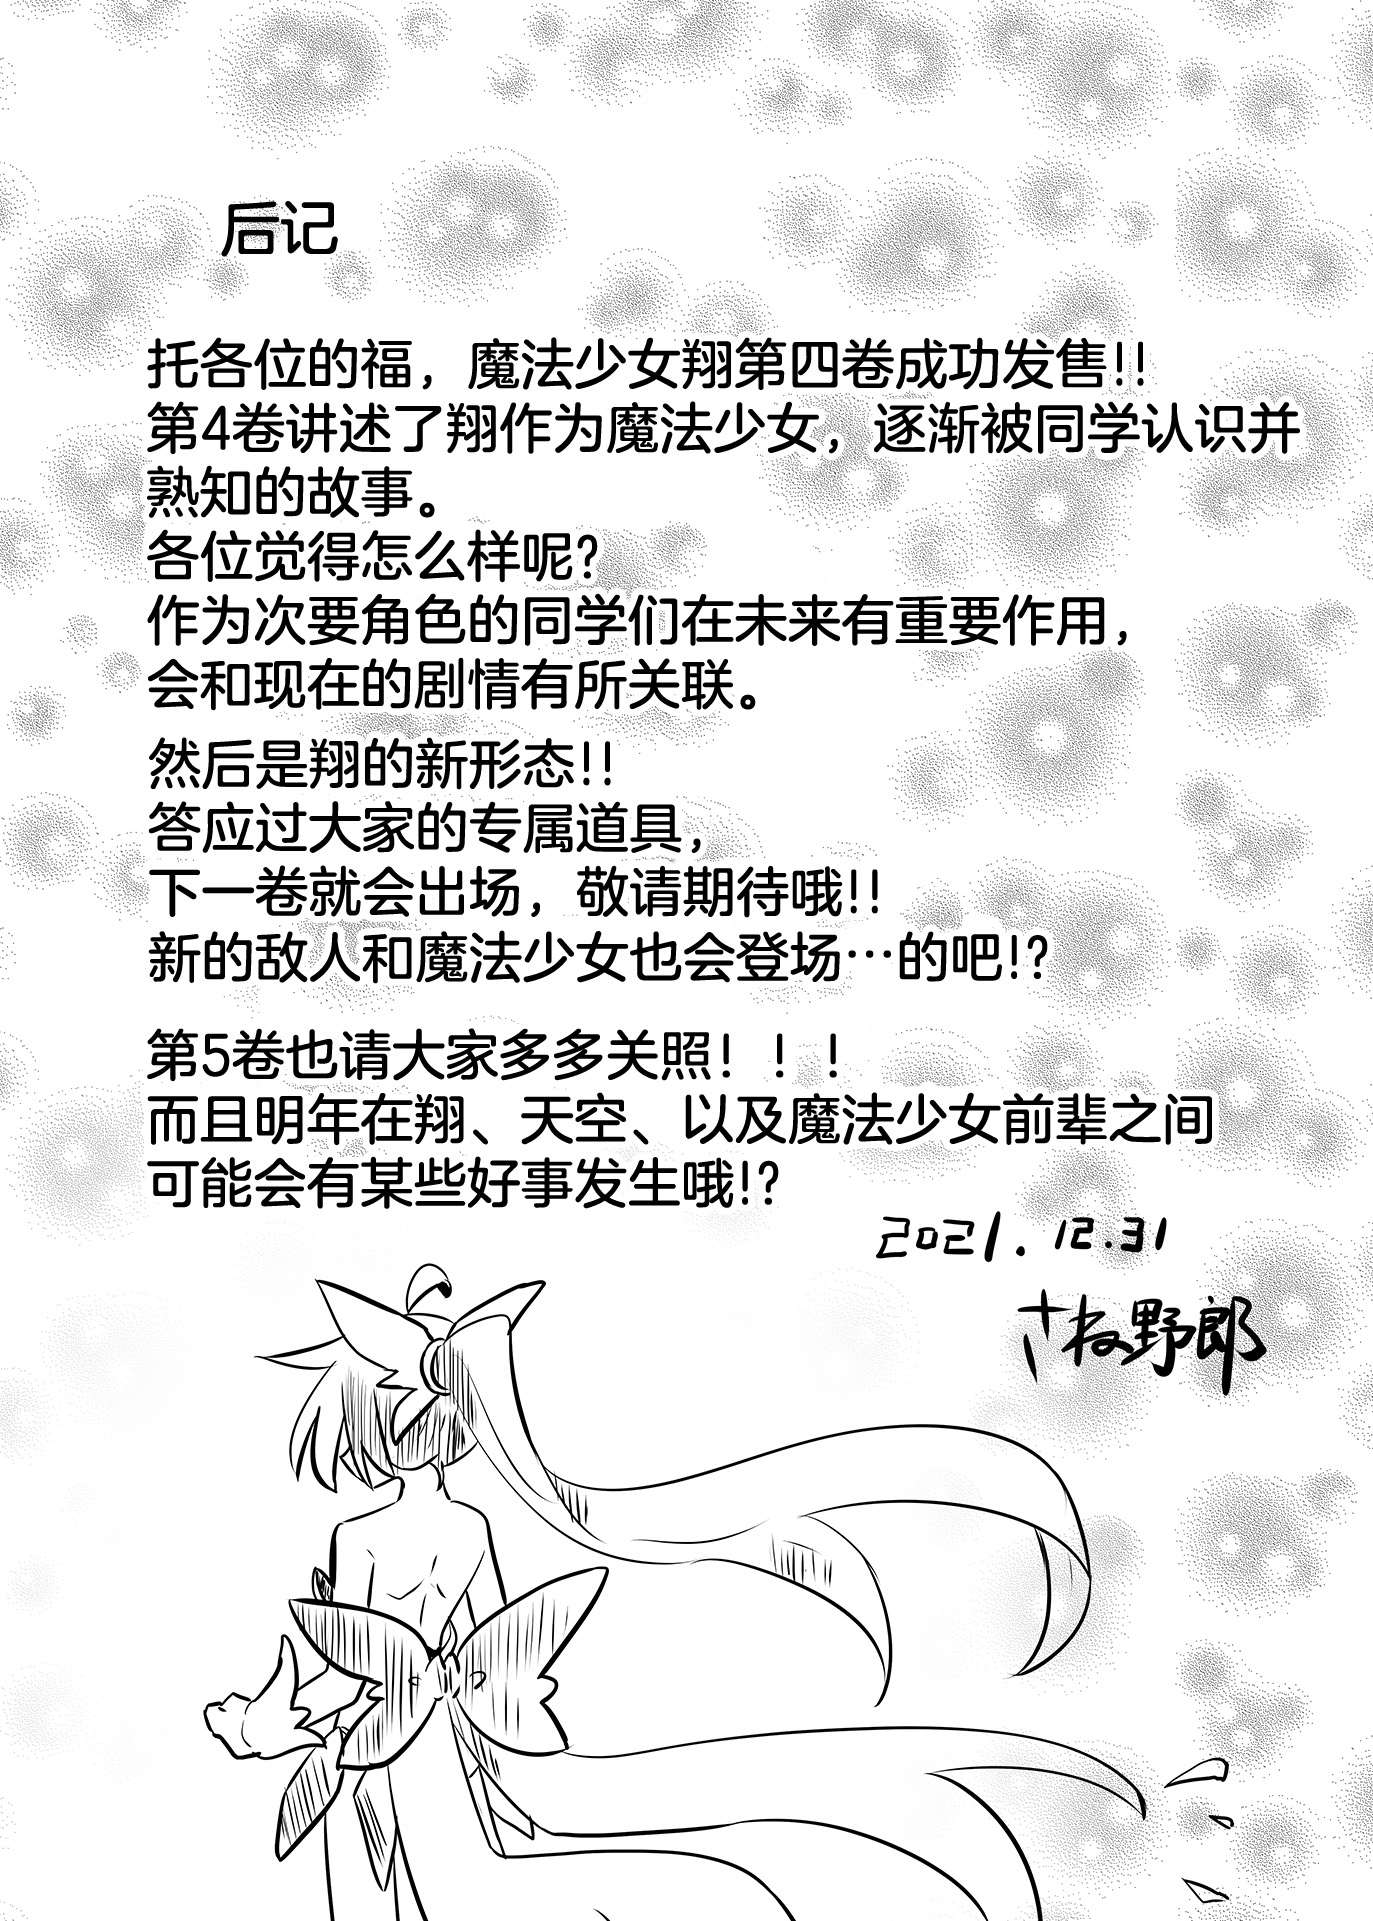 后记
托各位的福，魔法少女翔第四卷成功发售!!
第4卷讲述了翔作为魔法少女，逐渐被同学认识并
熟知的故事。
各位觉得怎么样呢?
作为次要角色的同学们在未来有重要作用，
会和现在的剧情有所关联。
然后是翔的新形态!!
答应过大家的专属道具，
下一卷就会出场，敬请期待哦!!
新的敌人和魔法少女也会登场…的吧!?
第5卷也请大家多多关照！！！
而且明年在翔、天空、以及魔法少女前辈之间
可能会有某些好事发生哦!?
2021.12.31
さね野郎